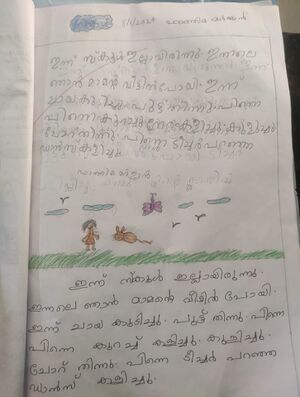 8/1/2024
ഇന്ന് സ്കൂൾ ഇല്ലായിരുന്നു. ഇന്നലെ
ഞാൻ മാമൻ്റെ വീട്ടിൽ പോയി. ഇന്ന്
ചായ കുടിച്ചു. പുട്ട് തിന്നു. പിന്നെ
പിന്നെ കുറച്ച് കളിച്ചു. കുളിച്ചു.
ചോറ് തിന്നു. പിന്നെ ടീച്ചർ പറഞ്ഞ
ഡാൻസ് കളിച്ചു.
ഇന്ന് സ്കൂൾ ഇല്ലായിരുന്നു.
ഇന്നലെ ഞാൻ മാമൻ്റെ വീട്ടിൽ പോയി.
ഇന്ന് ചായ കുടിച്ചു. പുട്ട് തിന്നു. പിന്നെ
പിന്നെ കുറച്ച് കളിച്ചു. കുളിച്ചു.
ചോറ് തിന്നു. പിന്നെ ടീച്ചർ പറഞ്ഞ
ഡാൻസ് കളിച്ചു.